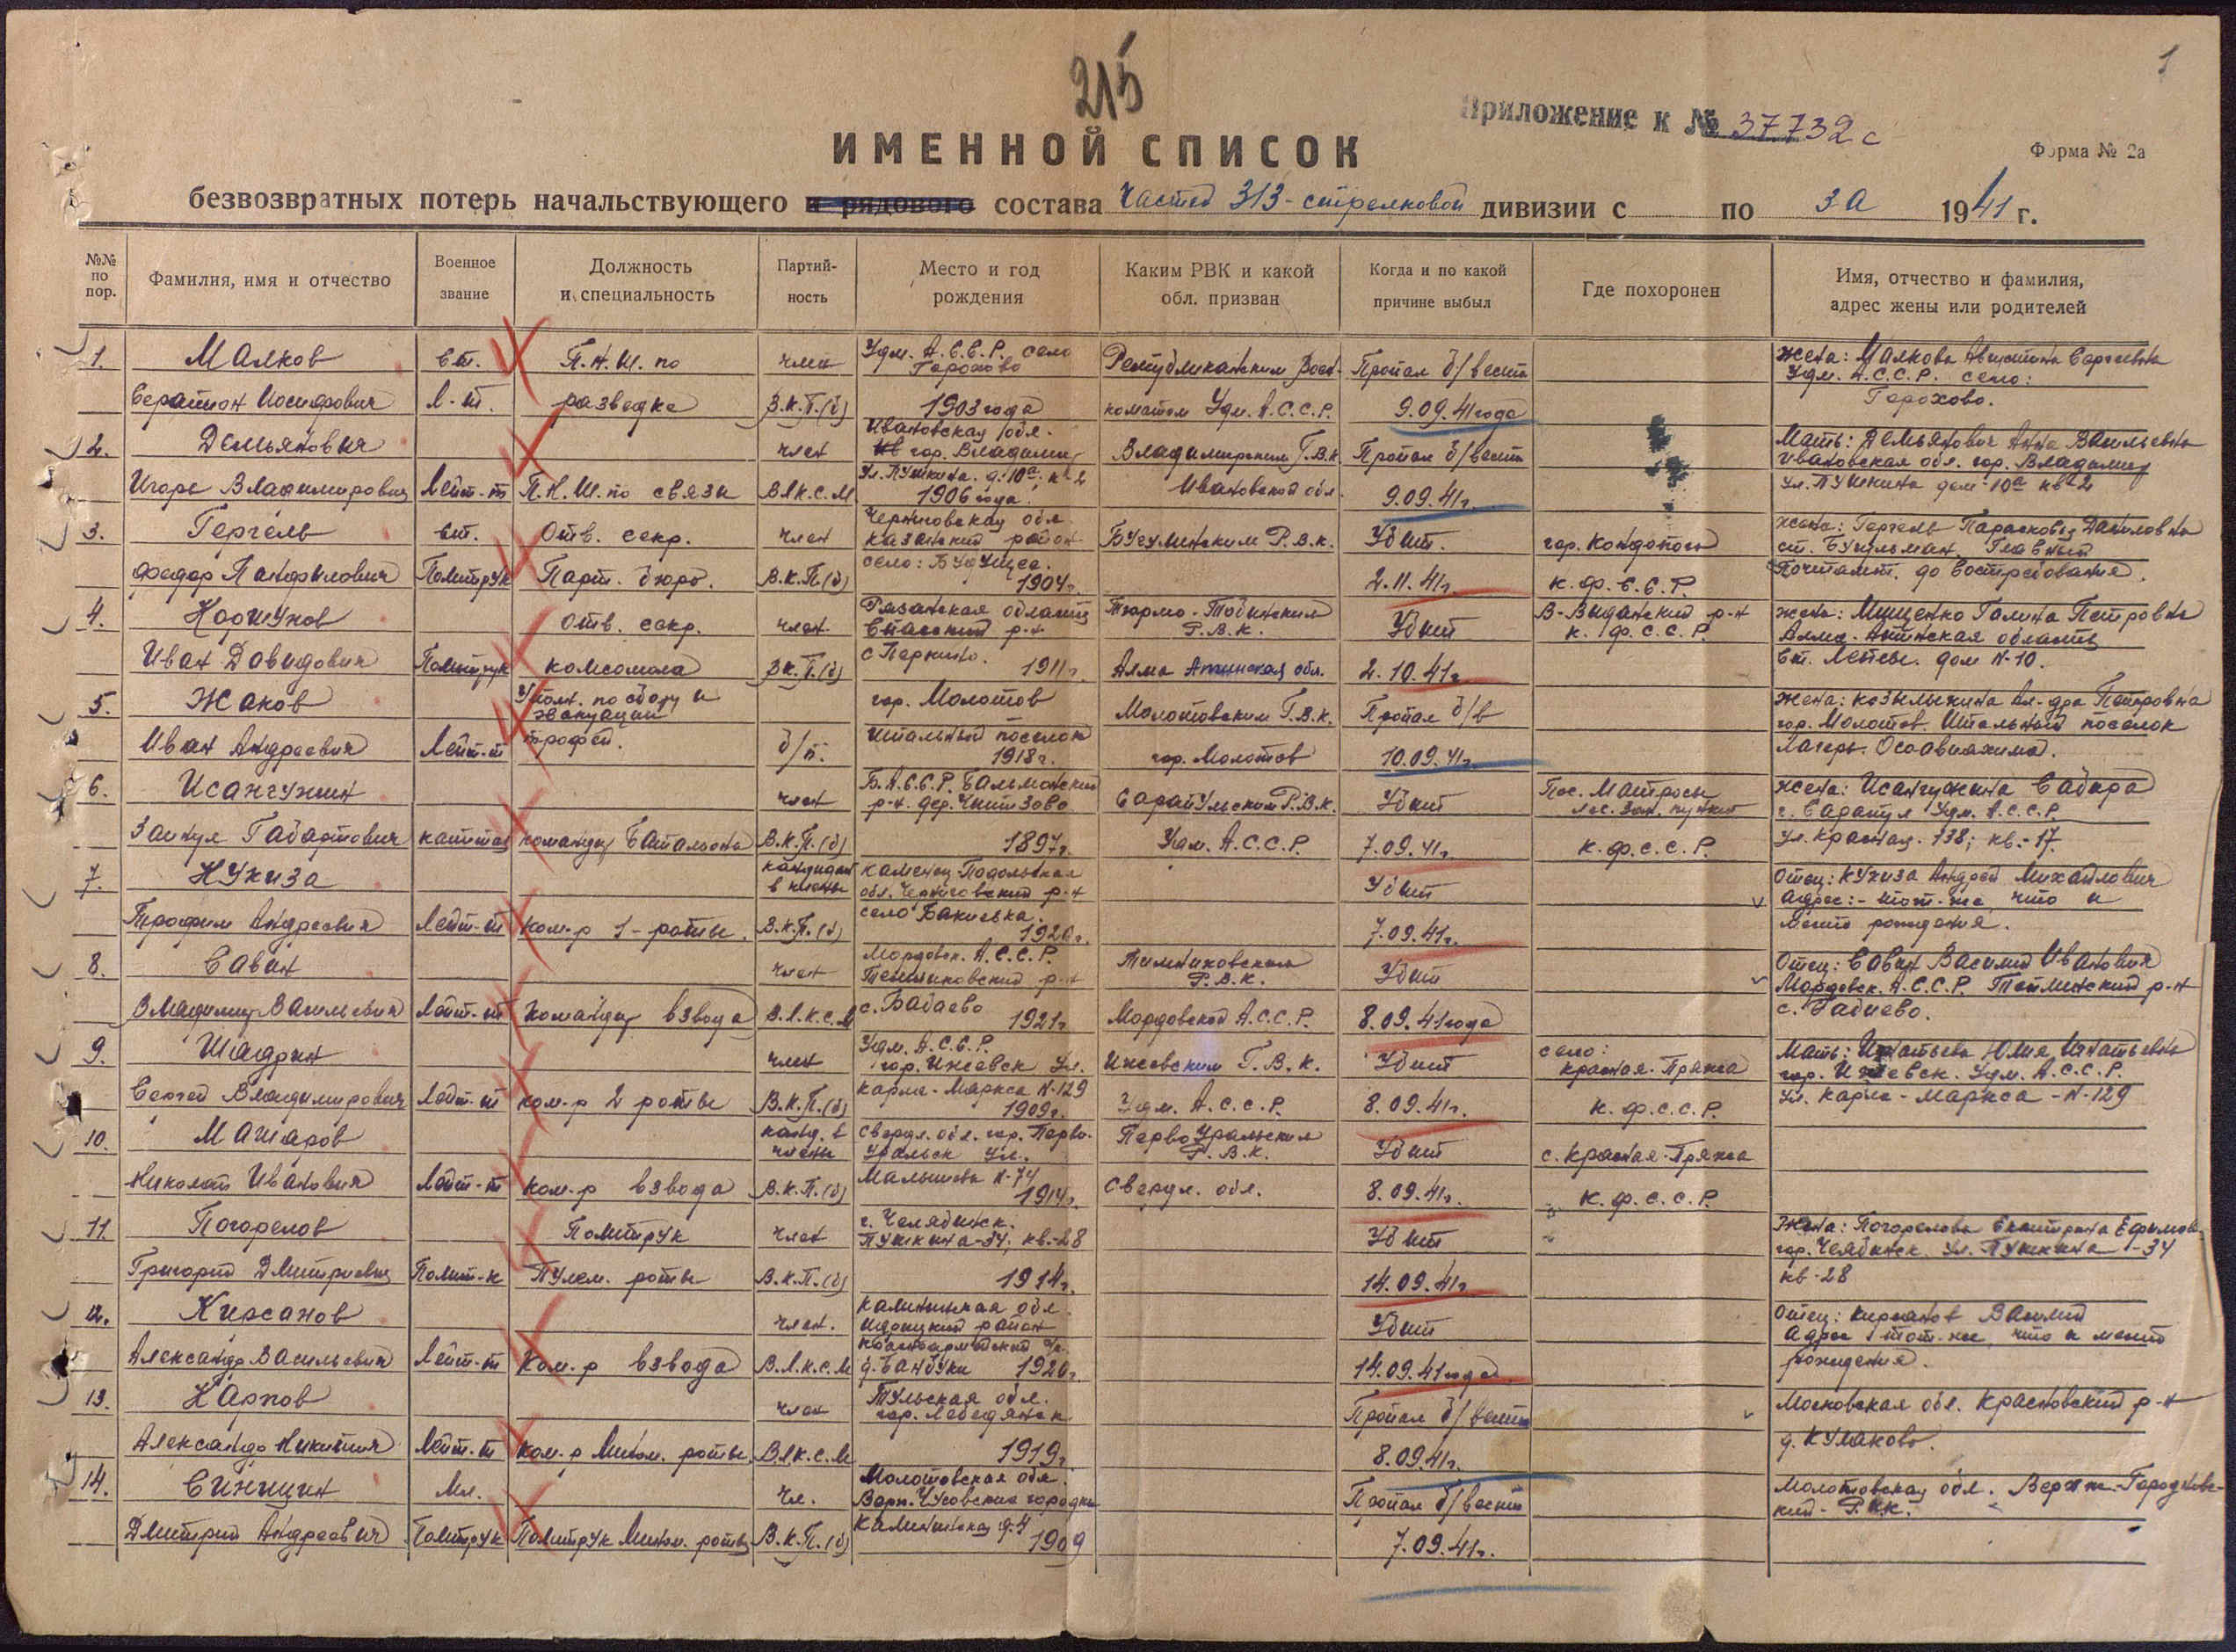 1
215
Приложение к № 37732с
ИМЕННОЙ СПИСОК
Форма № 2а
безвозвратных потерь начальствующего и рядового состава частей 313-стрелковой дивизии с по за 1941 г.
№№ по пор.
Фамилия, имя и отчество
Военное звание
Должность и специальность
Партий-ность
Место и год рождения
Каким РВК и какой обл. призван
Когда и по какой причине выбыл
Где похоронен
Имя, отчество и фамилия, адрес жены или родителей
1.
Малков
Серапион Иосифович
ст.
Л-т.
П.Н.Ш. по
разведке
член
В.К.П.(б)
Удм. А.С.С.Р. село
Горохово
1903 года
Республиканским Воен-
коматом Удм. А.С.С.Р.
Пропал б/вести
9.09.41 года
жена: Малкова Августина Сергеевна
Удм. А.С.С.Р. село:
Горохово.
2.
Демьянович
Игорь Владимирович
Лейт-т
П.Н.Ш. по связи
член
ВЛК.С.М
Ивановская обл.
гор. Владимир
Ул. Пушкина. д. 10а. кв 2
1906 года
Владимирским Г.В.К
Ивановской обл.
Пропал б/вести
9.09.41г.
Мать: Демьянович Анна Васильевна
Ивановская обл. гор. Владимир
Ул. Пушкина дом-10а кв 2
3.
Гергель
Федор Панфилович
ст.
Политрук
Отв. секр.
Парт. бюро.
член
В.К.П.(б)
Черниговская обл.
район
село:
1904г.
Р.В.К.
Убит.
2.11.41г.
гор. Кондопога
К.Ф.С.С.Р.
жена: Гергель Парасковья Даниловна
ст. Главный
Почтамт. до востребования.
4.
Коршунов
Иван Давидович
Политрук
отв. секр.
комсомола
член
ВК.П.(б)
Рязанская область
Спасский р-н
с
1911г.
Р.В.К.
Алма Атинская обл.
Убит
2.10.41г.
В-Виданский р-н
К.Ф.С.С.Р.
жена: Мищенко Галина Петровна
Алма-Атинская область
дом N-10.
5.
Жаков
Иван Андреевич
Лейт-т
Уполн. по сбору и
эвакуации
трофей.
б/п.
гор. Молотов
поселок
1918г.
Молотовским Г.В.К.
гор. Молотов
Пропал б/в
10.09.41г.
жена: Ал-дра Петровна
гор. Молотов. поселок
Лагерь. Осоавиахима.
6.
Исангужин
Габартович
капитан
командир Батальона
член
В.К.П.(б)
Б.А.С.С.Р.
р-н. дер.
1897г.
Сарапульским Р.В.К.
Удм. А.С.С.Р.
Убит
7.09.41г.
Пос. Матросы
К.Ф.С.С.Р.
жена: Исангужина Сабира
г. Сарапул Удм. А.С.С.Р.
Ул. Красная. 138; кв.-17.
7.
Кукиза
Трофим Андреевич
Лейт-т
ком-р 1-роты.
кандидат
в члены
В.К.П.(б)
Каменец-Подольская
обл. р-н
село
1920г.
Убит
7.09.41г.
Отец: Кукиза Андрей Михайлович
Адрес:- тот-же, что и
место рождения.
8.
Савин
Владимир Васильевич
Лейт-т
Командир взвода
член
В.Л.К.С.М
Мордовск. А.С.С.Р.
Темниковский р-н
с. Бабаево
1921г.
Р.В.К.
Мордовской А.С.С.Р.
Убит
8.09.41 года
Отец: Савин Василий Иванович
Мордовск. А.С.С.Р. р-н
с.
9.
Шадрин
Сергей Владимирович
Лейт-т
ком-р 2 роты
член
В.К.П.(б)
Удм. А.С.С.Р.
гор. Ижевск Ул.
Карла-Маркса N-129
1909г.
Ижевским Г.В.К.
Удм. А.С.С.Р.
Убит
8.09.41г.
село:
Красная-Пряжа
К.Ф.С.С.Р.
Мать: Игнатьева Юлия Игнатьевна
гор. Ижевск. Удм. А.С.С.Р.
Ул. Карла-Маркса-N-129
10.
Машаров
Николай Иванович
Лейт-т
ком-р взвода
канд. в
члены
В.К.П.(б)
Свердл. обл. гор. Перво-
Уральск Ул.
Малышева N-74
1914г.
ПервоУральским
Р.В.К.
Свердл. обл.
Убит
8.09.41г.
с. Красная-Пряжа
К.Ф.С.С.Р.
11.
Погорелов
Григорий Дмитриевич
Полит-к
Политрук
Пулем. роты
член
В.К.П.(б)
г. Челябинск.
Пушкина-34, кв.-28
1914г.
Убит
14.09.41г.
Жена: Погорелова Екатерина Ефимов.
гор. Челябинск Ул. Пушкина-34
кв-28
12.
Кирсанов
Александр Васильевич
Лейт-т
Ком-р взвода
член.
В.Л.К.С.М
Калининская обл.
Идрицкий район
д. Бандуки 1920г.
Убит
14.09.41 года
Отец: Кирсанов Василий
Адрес тот-же, что и место
рождения.
13.
Карпов
Александр Никитич
Лейт-т
ком-р Мином. роты.
член
ВЛК.С.М
Тульская обл.
гор. Лебедянск
1919г.
Пропал б/вести
8.09.41г.
Московская обл. р-н
д. Кулаково.
14.
Синицин
Дмитрий Андреевич
Мл.
Политрук
Политрук Мином. роты
чл.
В.К.П.(б)
Молотовская обл.
Верх. Чусовские городки
Калининская д.4
1909
Пропал б/вести
7.09.41г.
Молотовская обл. Верхне-Городков-
кий-Р.В.К.